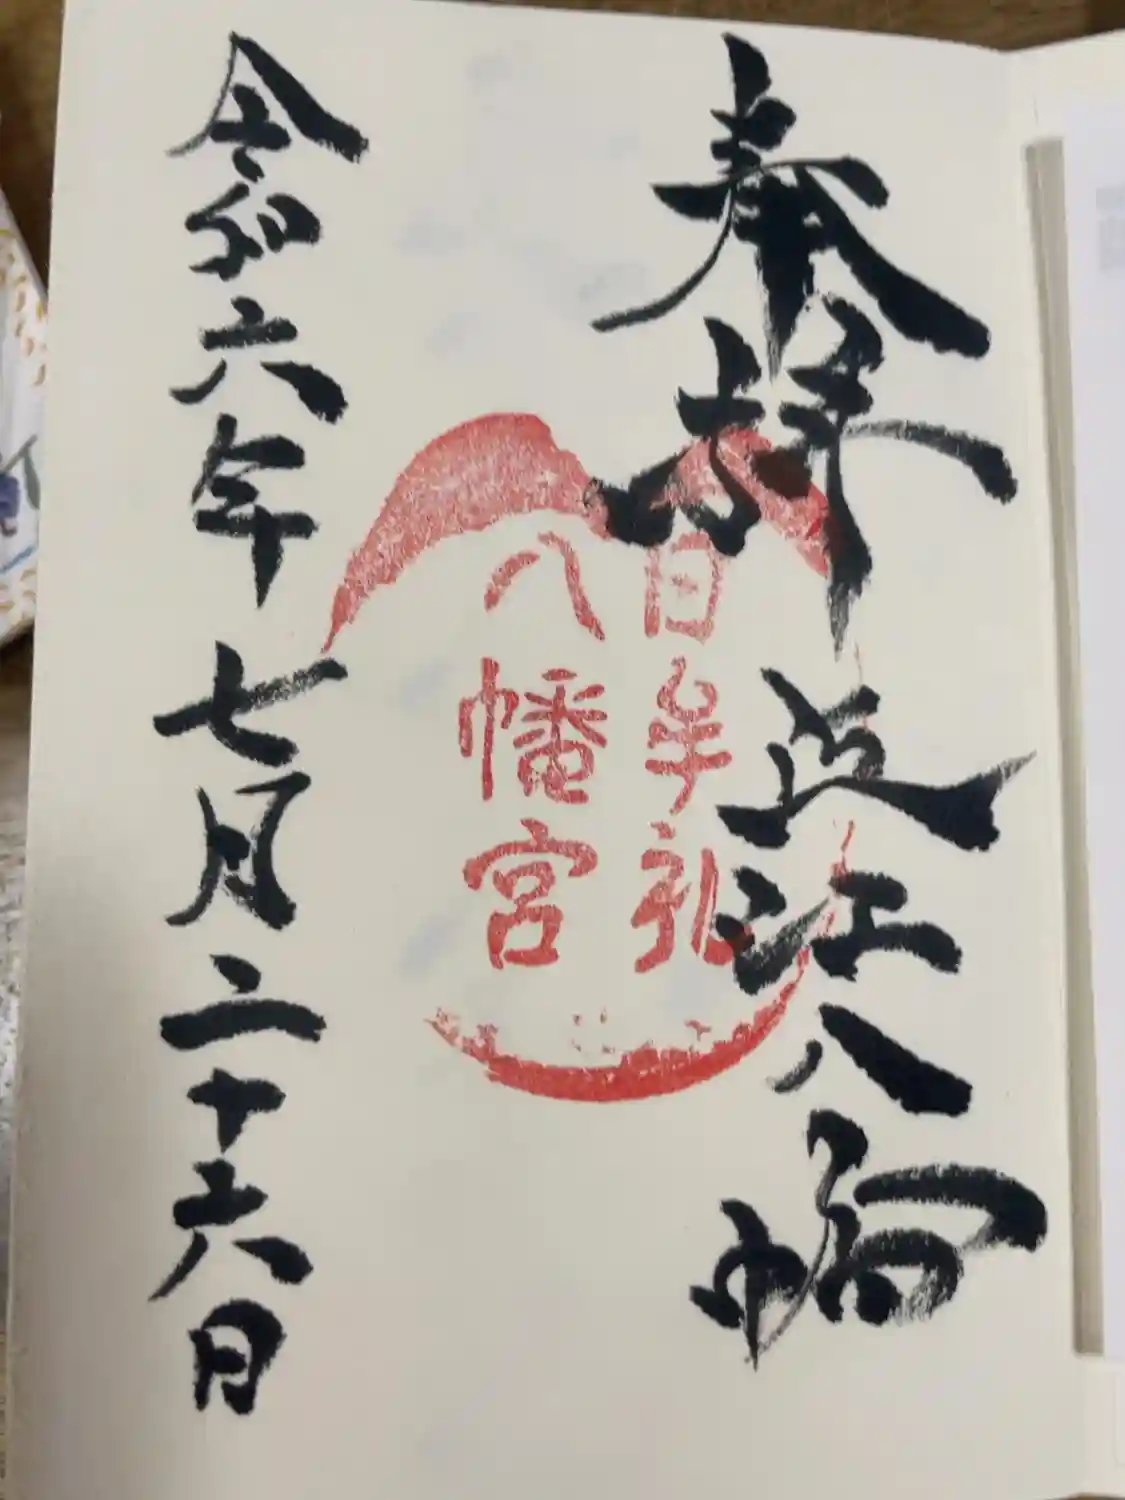 奉拝 近江八幡
日牟礼
八幡宮
令和六年七月二十六日